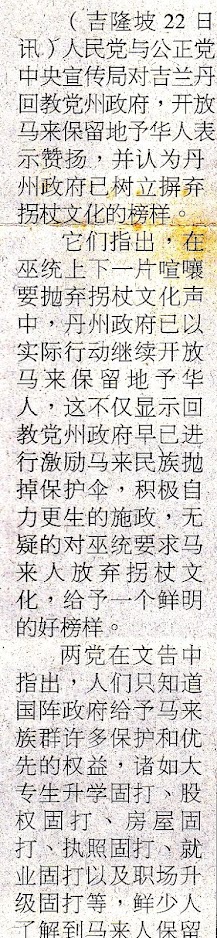 （吉隆坡22日
讯）人民党与公正党
中央宣传局对吉兰丹
回教党州政府，开放
马来保留地予华人表
示赞扬，并认为丹
州政府已树立摒弃
拐杖文化的榜样。
它们指出，在
巫统上下一片喧嚷
要抛弃拐杖文化声
中，丹州政府已以
实际行动继续开放
马来保留地予华
人，这不仅显示回
教党州政府早已进
行激励马来民族抛
掉保护伞，积极自
力更生的施政，无
疑的对巫统要求马
来人放弃拐杖文
化，给予一个鲜明
的好榜样。
两党在文告中
指出，人们只知道
国阵政府给予马来
族群许多保护和优
先的权益，诸如大
专生升学固打、股
权固打、房屋固
打、执照固打、就
业固打以及职场升
级固打等，鲜少人
了解到马来人保留